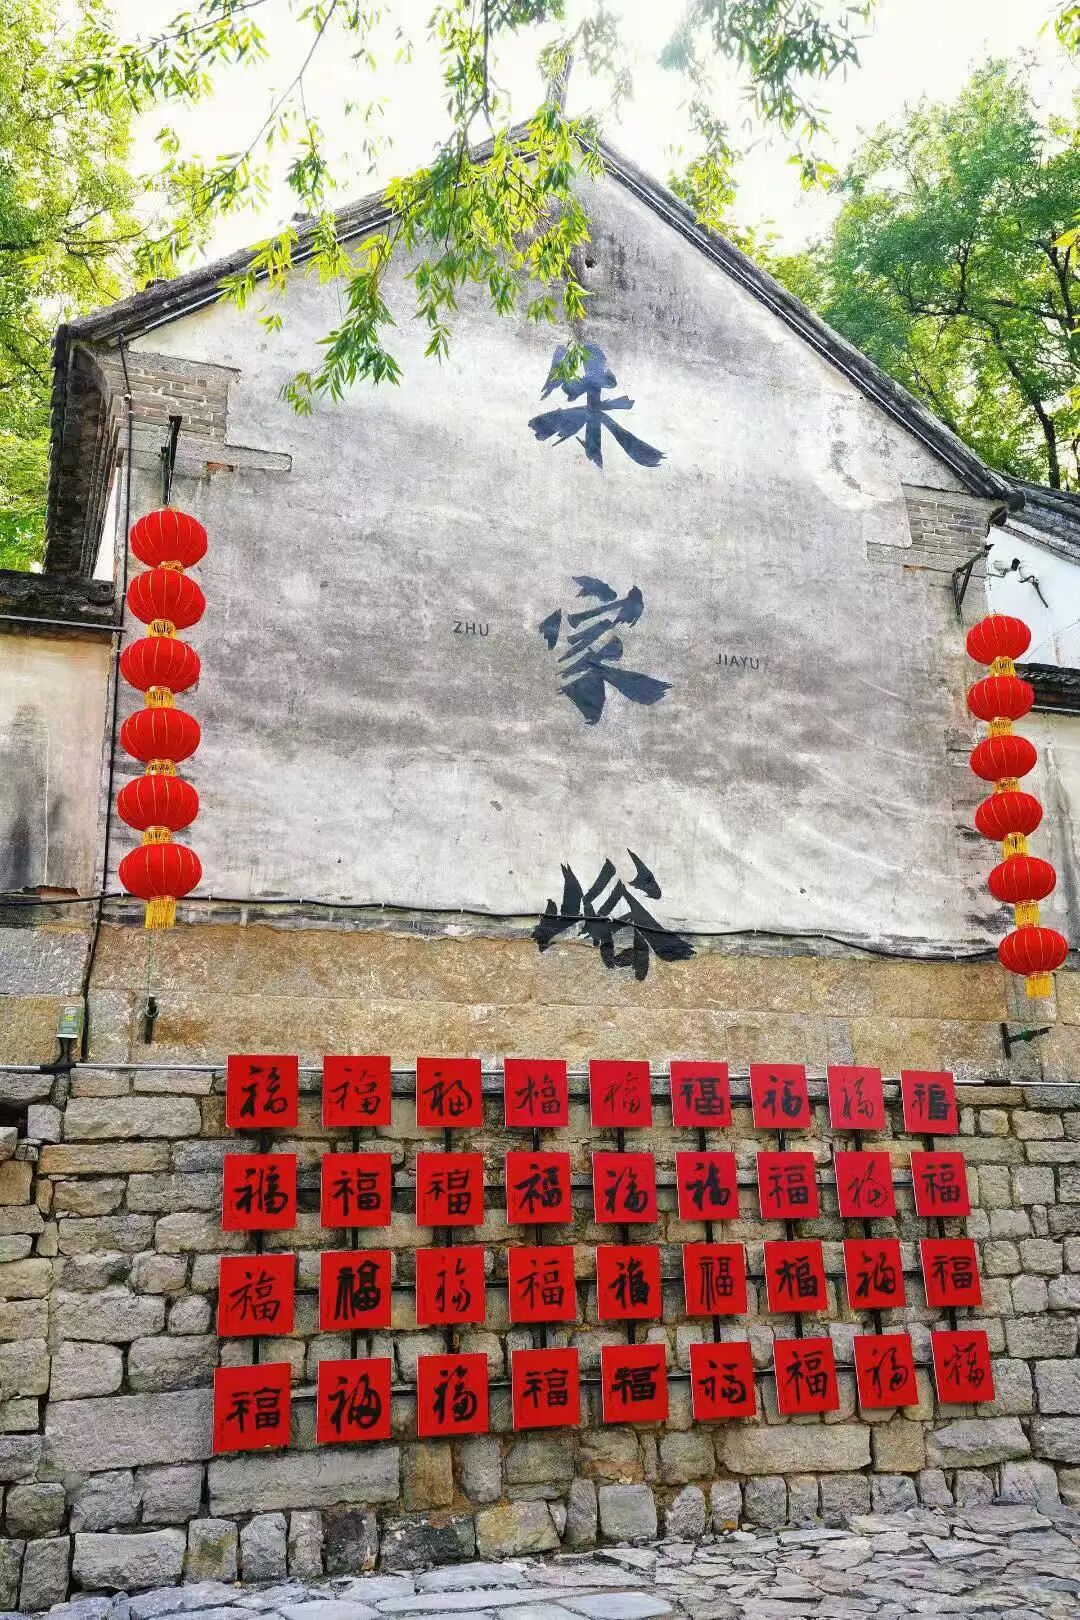 朱家峪
ZHU
JIAYU
福 福 福 福 福 福 福 福 福
福 福 福 福 福 福 福 福 福
福 福 福 福 福 福 福 福 福
福 福 福 福 福 福 福 福 福